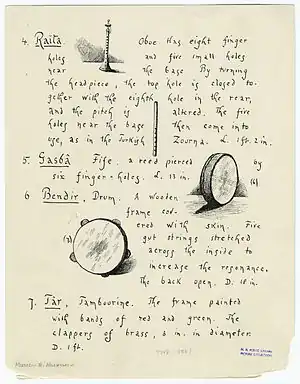 4. Raita. Oboe Has eight finger
holes and five small holes
near the base By turning
the headpiece, the top hole is closed to-
gether with the eighth hole in the rear,
and the pitch is altred. The five
holes near the base then come into
use, as in the Turkish Zourna. L. 1ft. 2 in.
5. Gasbâ Fife. a reed pierced by
six finger-holes. L. 13 in. (6)
6 Bendir, Drum. A wooden
frame cov-
(7) ered with skin. Five
gut strings stretched
across the inside to
increase the resonance,
the back open. D. 18 in.
7. Tar, Tambourine. The frame painted
with bands of red and green. The
clappers of brass, 2 in. in diameter.
D. 1ft.